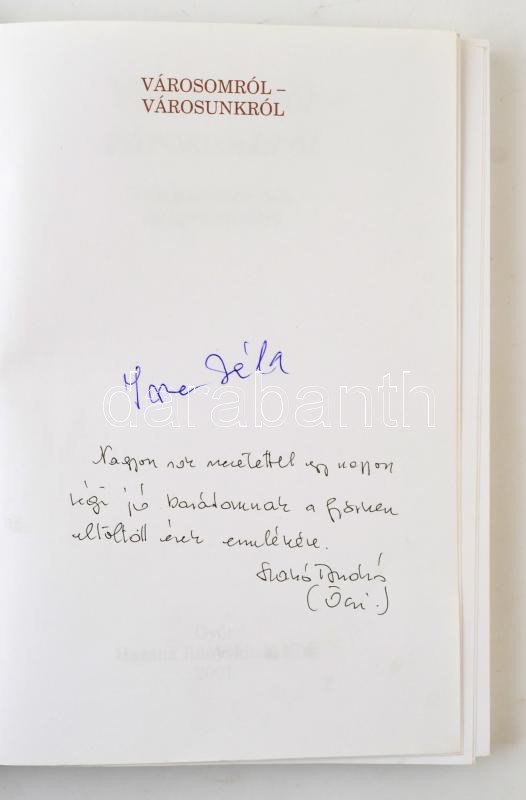 VÁROSOMRÓL –
VÁROSUNKRÓL
Béla
darabanth
Nagyon sok szeretettel egy nagyon
régi jó barátomnak a Győrben
eltöltött évek emlékére.
Szabó András
(Öcsi.)
Győr
2001